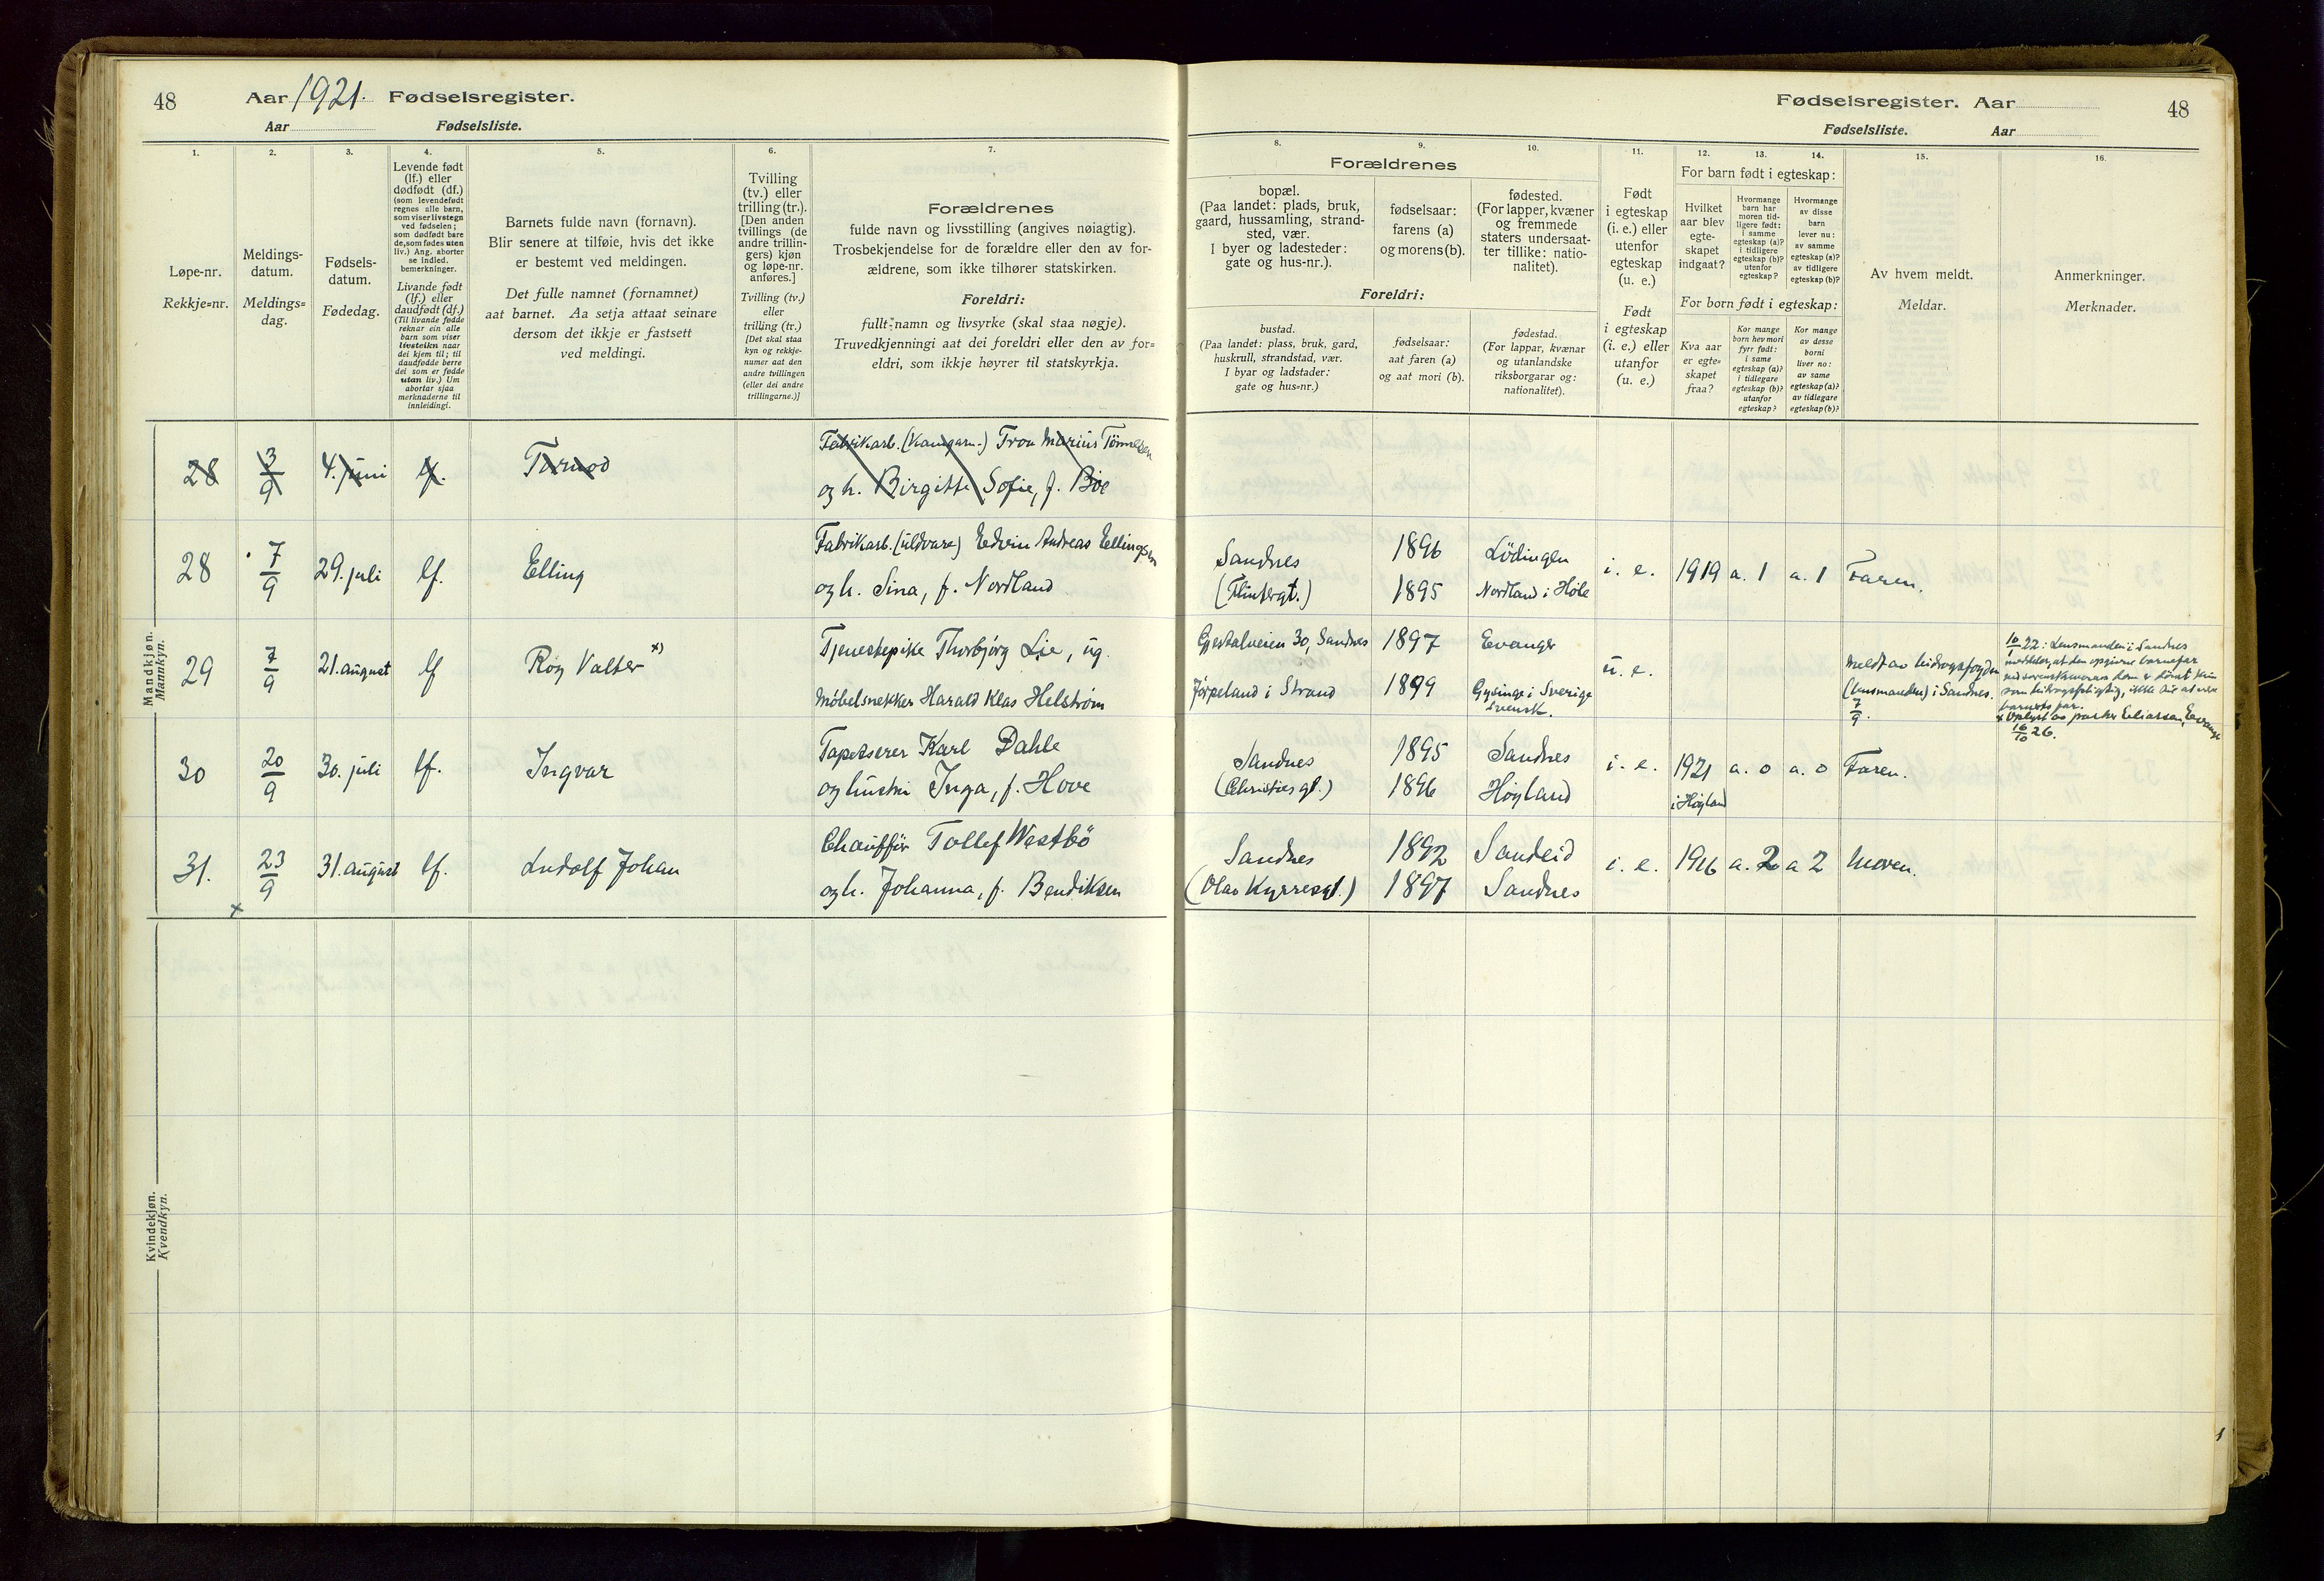 48
Aar 1921. Fødselsregister.
Aar
Fødselsliste.
1.
Løpe-nr.
Rekkje-nr.
2.
Meldings-
datum.
Meldings-
dag.
3.
Fødsels-
datum.
Fødedag.
4.
Levende født
(lf.) eller
dødfødt (df.)
(som levendefødt
regnes alle barn,
som viser livstegn
ved fødselen;
som dødfødt bare
de, som fødes uten
liv.) Ang. aborter
se indled.
bemerkninger.
Livande født
(lf.) eller
daudfødt (df.)
(Til livande fødde
reknar ein alle
barn som viser
livsteikn naar
dei kjem til; til
daudfødde berre
dei som er fødde
utan liv.) Um
abortar sjaa
merknaderne til
innleidingi.
5.
Barnets fulde navn (fornavn).
Blir senere at tilføie, hvis det ikke
er bestemt ved meldingen.
Det fulle namnet (fornamnet)
aat barnet. Aa setja attaat seinare
dersom det ikkje er fastsett
ved meldingi.
6.
Tvilling
(tv.) eller
trilling (tr.).
[Den anden
tvillings (de
andre trillin-
gers) kjøn
og løpe-nr.
anføres.]
Tvilling (tv.)
eller
trilling (tr.)
[Det skal staa
kyn og rekkje-
numer aat den
andre tvillingen
(eller dei andre
trillingarne.)]
7.
Forældrenes
fulde navn og livsstilling (angives nøiagtig).
Trosbekjendelse for de forældre eller den av for-
ældrene, som ikke tilhører statskirken.
Foreldri:
fullt namn og livsyrke (skal staa nøgje).
Truvedkjenningi aat dei foreldri eller den av for-
eldri, som ikkje høyrer til statskyrkja.
Fødselsregister. Aar
48
Fødselsliste.
Aar
8.
Forældrenes
bopæl.
(Paa landet: plads, bruk,
gaard, hussamling, strand-
sted, vær.
I byer og ladesteder:
gate og hus-nr.).
Foreldri:
bustad.
(Paa landet: plass, bruk, gard,
huskrull, strandstad, vær.
I byar og ladstader:
gate og hus-nr.)
9.
fødselsaar:
farens (a)
og morens (b).
fødselsaar:
aat faren (a)
og aat mori (b).
10.
fødested.
(For lapper, kvæner
og fremmede
staters undersaat-
ter tillike: natio-
nalitet).
fødestad.
(For lappar, kvænar
og utanlandske
riksborgarar og:
nationalitet).
11.
Født
i egteskap
(i. e.) eller
utenfor
egteskap
(u. e.)
Født
i egteskap
(i. e.) eller
utanfor
(u. e.)
12.
13.
14.
For barn født i egteskap:
Hvilket
aar blev
egte-
skapet
indgaat?
Hvormange
barn har
moren tid-
ligere født:
i samme
egteskap (a)?
i tidligere
egteskap (b)?
utenfor
egteskap?
Hvormange
av disse
barn
lever nu:
av samme
egteskap (a)?
av tidligere
egteskap (b)?
For born født i egteskap:
Kva aar
er egte-
skapet
fraa?
Kor mange
born hev mori
fyrr født:
i same
egteskap (a)?
i tidlegare
egteskap (b)?
utanfor
egteskap?
Kor mange
av desse
borni
liver no:
av same
egteskap (a)?
av tidlegare
egteskap (b)?
15.
Av hvem meldt.
Meldar.
16.
Anmerkninger.
Merknader.
Mandkjøn.
Mannkyn.
28 3/9 4. juni lf. Tormod Fabrikarb. (Kamgarn.) Tron Marius Tønnesen
og h. Birgitte Sofie, f. Boe
28 7/9 29. juli lf. Elling Fabrikarb. (uldvare) Edvin Andreas Ellingsen
og h. Sina, f. Nordland
Sandnes 1896 Lödingen i. e. 1919 a. 1 a. 1 Faren.
(Flintergt.) 1895 Nordland i Höle
29 7/9 21. august lf Roy Valter x) Tjenestepike Thorbjørg Lie, ug.
Møbelsnekker Harald Klas Helstrøm
Gjestalveien 30, Sandnes 1897 Evanger u. e.
Jørpeland i Strand 1899 Gysinge i Sverige
svensk.
Meldt av bidragsfogden
(lensmanden) i Sandnes.
7/9.
10/1 22: Lensmanden i Sandnes
meddeler, at den opgivne barnefar
som bidragspligtig, ikke til at være
barnets far.
x Oplyst av pastor Eliassen, Evanger
16/10 26.
30 20/9 30. juli lf. Ingvar Tapetserer Karl Dahle
og hustru Inga, f. Hove
Sandnes 1895 Sandnes i. e. 1921 a. 0 a. 0 Faren.
(Christiesgt.) 1896 Høyland i Høyland
31. 23/9 31. august lf. Ludolf Johan Chauffür Tollef Westbö
og h. Johanna, f. Bendiksen
Sandnes 1892 Sandeid i. e. 1916 a. 2 a 2 Moren.
(Olav Kyrresgt.) 1897 Sandnes
x
Kvindekjøn.
Kvendkyn.